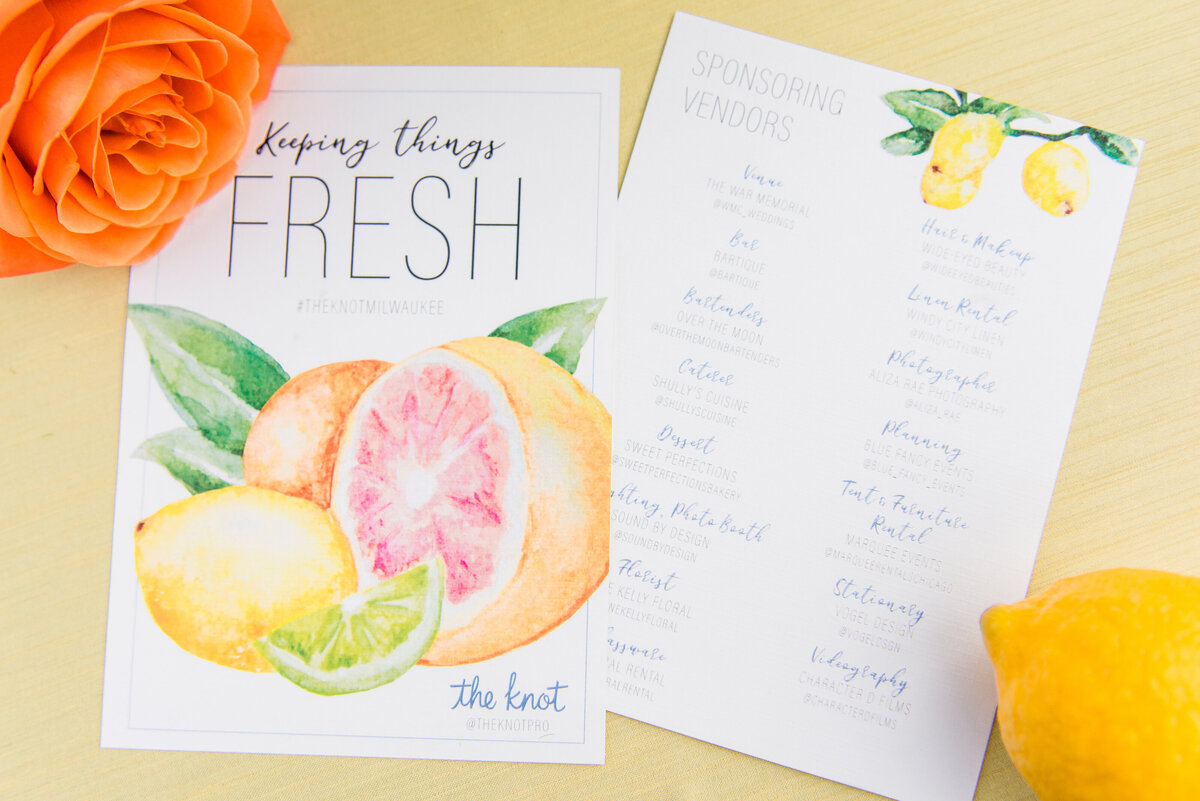 Keeping things
FRESH
#THEKNOTMILWAUKEE
the knot
@THEKNOTPRO
SPONSORING
VENDORS
Venue
THE WAR MEMORIAL
@WMC_WEDDINGS
Bar
BARTIQUE
@BARTIQUE
Bartenders
OVER THE MOON
@OVERTHEMOONBARTENDERS
Caterer
SHULLY'S CUISINE
@SHULLYSCUISINE
Dessert
SWEET PERFECTIONS
@SWEETPERFECTIONSBAKERY
ghting, Photo Booth
SOUND BY DESIGN
@SOUNDBYDESIGN
Florist
E KELLY FLORAL
NEKELLYFLORAL
assware
AL RENTAL
RALRENTAL
Hair & Makeup
WIDE-EYED BEAUTY
@WIDEEYEDBEAUTIES
Linen Rental
WINDY CITY LINEN
@WINDYCITYLINEN
Photographer
ALIZA RAE PHOTOGRAPHY
@ALIZA_RAE
Planning
BLUE FANCY EVENTS
@BLUE_FANCY_EVENTS
Tent & Furniture
Rental
MARQUEE EVENTS
@MARQUEERENTALSCHICAGO
Stationary
VOGEL DESIGN
@VOGELDSGN
Videography
CHARACTER D FILMS
@CHARACTERDFILMS